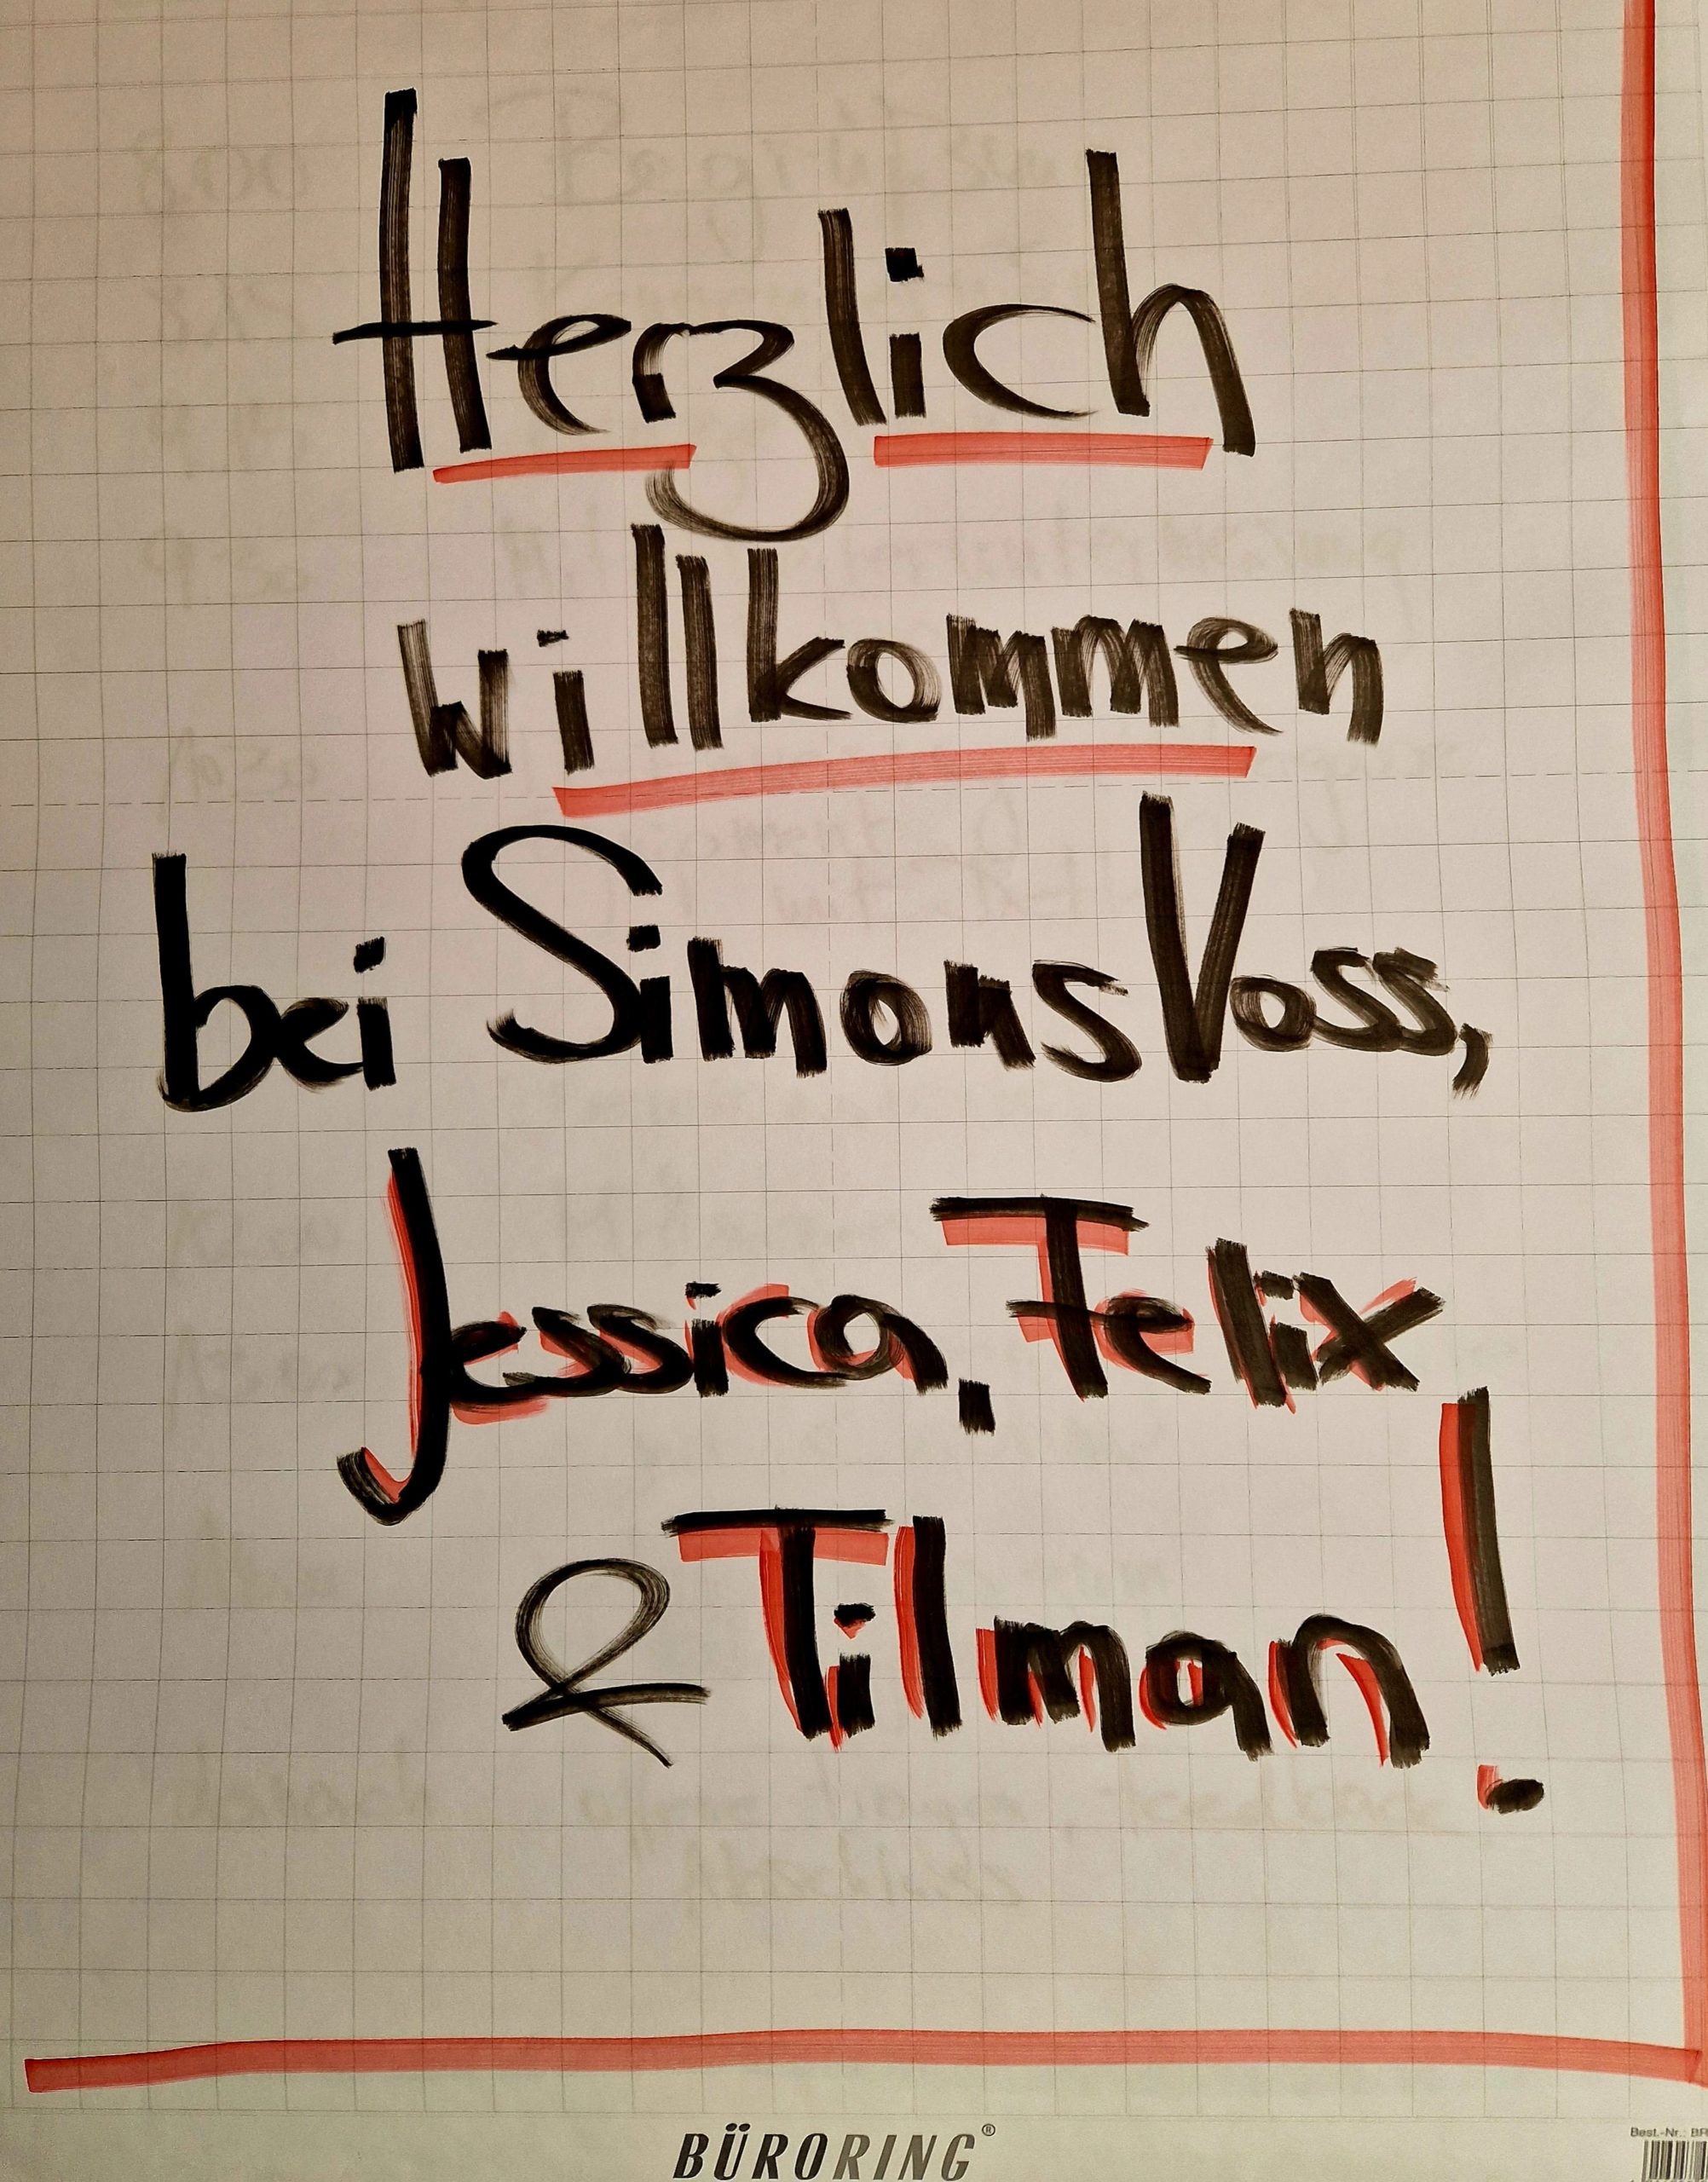 Herzlich
willkommen
bei SimonsVoss,
Jessica, Felix
& Tilman!
BÜRORING®
Best.-Nr.: BR